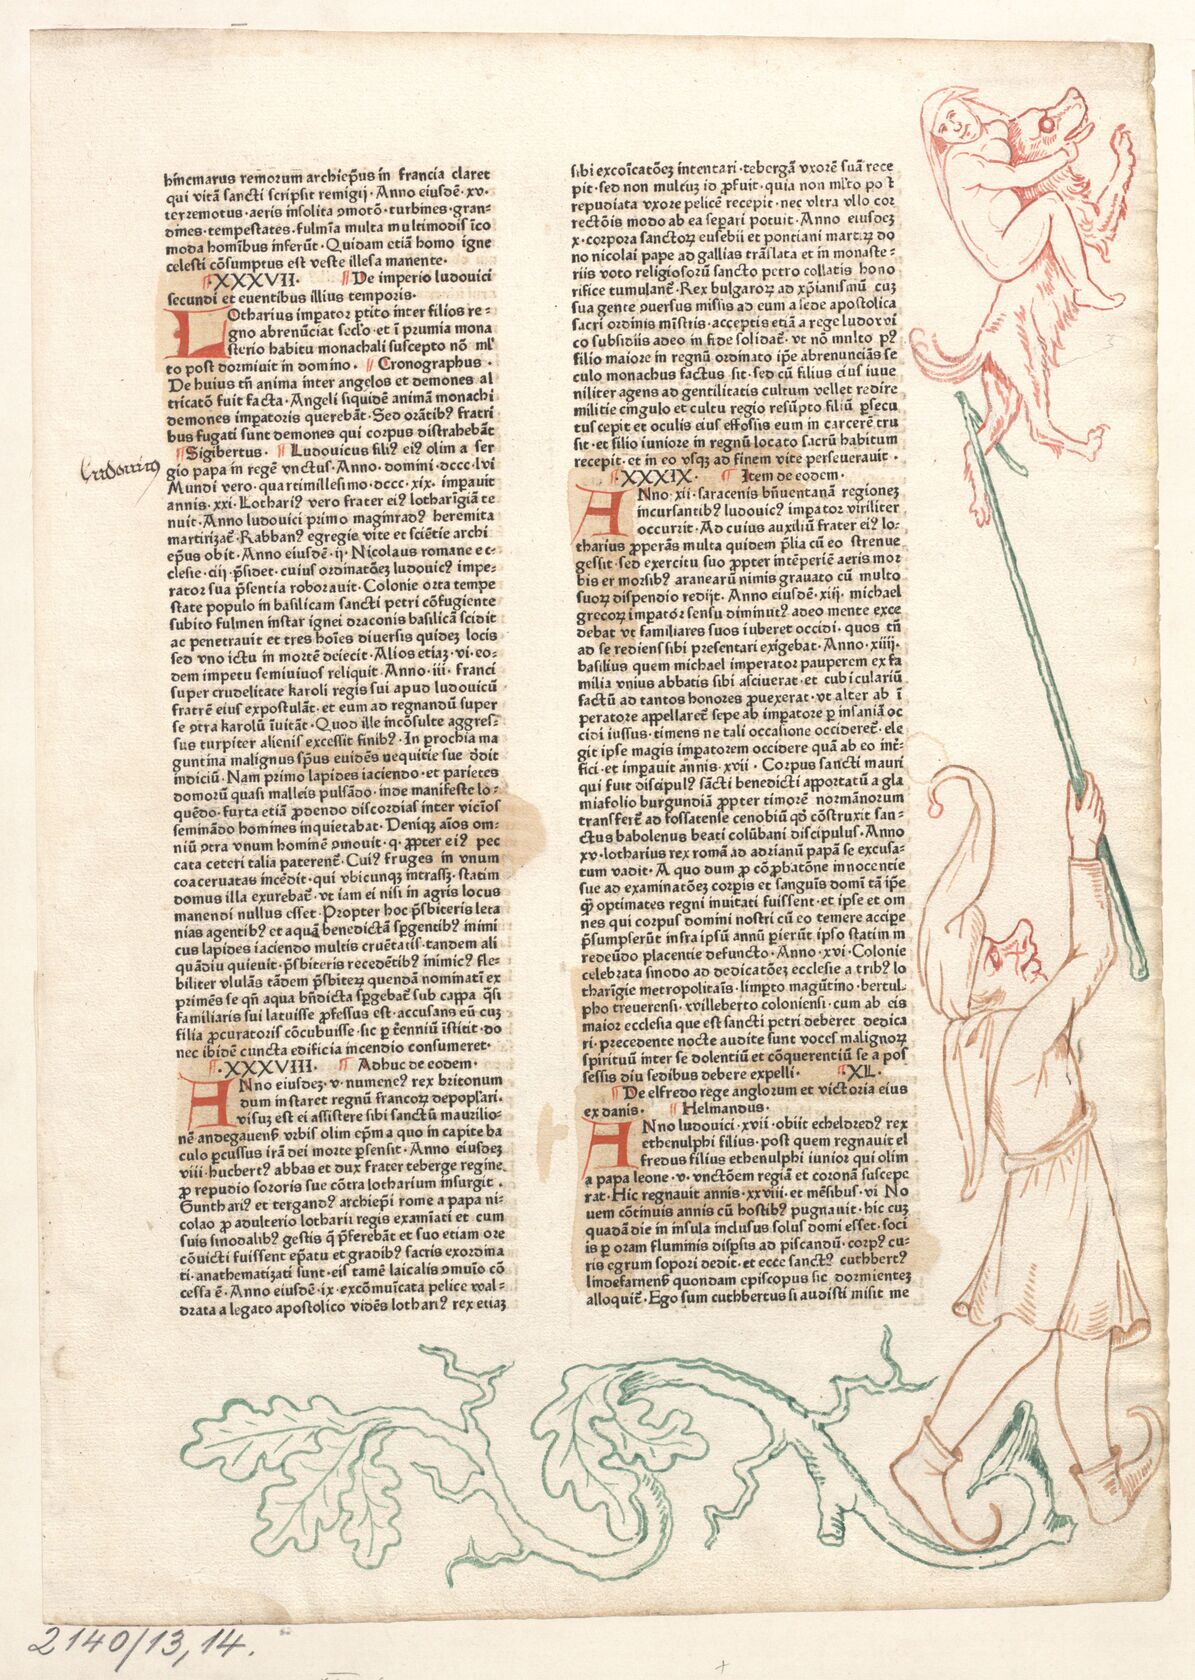 hincmarus remorum archiep̄us in francia claret
qui vitā sancti scripsit remigij· Anno eiusdē· xv·
terremotus· aeris insolita ꝯmotō· turbines· gran=
dines· tempestates· fulmīa multa multimodis īco
moda hominibus inferūt· Quidam etiā homo igne
celesti cōsumptus est veste illesa manente·
¶·XXXVII· ¶De imperio ludouici
secundi et euentibus illius temporis·
Lotharius imꝑator ꝑtito inter filios re=
gno abrenūciat seclo· et ī prumia mona
sterio habitu monachali suscepto nō ml'
to post dormiuit in domino· ¶Cronographus·
De huius tn̄ anima inter angelos et demones al
tricatō fuit facta· Angeli siquidē animā monachi
demones imꝑatoris querebāt· Sed orātibꝰ fratri
bus fugati sunt demones qui corpus distrahebāt
¶Sigibertus· ¶Ludouicus filiꝰ eiꝰ olim a ser
gio papa in regē vnctus· Anno· domini· dccc· lvi
Mundi vero· quartimillesimo· dccc· xix· imꝑauit
annis· xxi· Lothariꝰ vero frater eiꝰ lotharīgiā te
nuit· Anno ludouici primo maginradꝰ heremita
martirizat̄· Rabbanꝰ egregie vite et sciētie archi
ep̄us obit· Anno eiusdē· ij· Nicolaus romane ec=
clesie· ciij· p̄sidet· cuius ordinatōeȝ ludouicꝰ impe=
rator sua p̄sentia roborauit· Colonie orta tempe
state populo in basilicam sancti petri cōfugiente
subito fulmen instar ignei draconis basilicā scidit
ac penetrauit et tres hoīes diuersis quideȝ locis
sed vno ictu in mortē deiecit· Alios etiaȝ· vi· eo=
dem impetu semiuiuos reliquit· Anno· iii· franci
super crudelitate karoli regis sui apud ludouicū
fratrē eius expostulāt· et eum ad regnandū super
se ꝯtra karolū īuitāt· Quod ille incōsulte aggres=
sus turpiter alienis excessit finibꝰ· In ꝑrochia ma
guntina malignus sp̄us euidēs nequitie sue ꝺdit
indiciū· Nam primo lapides iaciendo· et parietes
domorū quasi malleis pulsādo· inde manifeste lo=
quēdo· furta etiā ꝓdendo discordias inter vicīos
seminādo homines inquietabat· Deniqȝ aīos om=
niū ꝯtra vnum hominē ꝯmouit· q· ꝓpter eiꝰ pec
cata ceteri talia paterent̄· Cuiꝰ fruges in vnum
coaceruatas incēdit· qui vbicunqȝ intrassȝ· statim
domus illa exurebat̄· vt iam ei nisi in agris locus
manendi nullus esset· Propter hoc p̄sbiteris leta
nias agentibꝰ et aquā benedictā sꝑgentibꝰ inimi
cus lapides iaciendo multis cruētatis· tandem ali
quādiu quieuit· p̄sbiteris recedētibꝰ inimicꝰ fle=
biliter vlulās tādem p̄sbiteȝ quendā nominatī ex
primēs se qn̄ aqua bn̄dicta sꝑgebat̄ sub cappa q̄si
familiaris sui latuisse ꝓfessus est· accusans eū cuȝ
filia ꝓcuratoris cōcubuisse· sic ꝑ t̄enniū īstitit· do
nec ibidē cuncta edificia incendio consumeret·
¶·XXXVIII· ¶Adhuc de eodem·
Anno eiusdeȝ· v· numeneꝰ rex britonum
dum instaret regnū francoꝝ depoplari·
visuȝ est ei assistere sibi sanctū maurilio=
nē andegauens̄ vrbis olim ep̄m a quo in capite ba
culo ꝑcussus irā dei morte ꝑsensit· Anno eiusdeȝ
viii· hucbertꝰ abbas et dux frater teberge regine
ꝓ repudio sororis sue cōtra lotharium insurgit·
Gunthariꝰ et tergandꝰ archiep̄i rome a papa ni=
colao ꝓ adulterio lotharii regis examīati et cum
suis sinodalibꝰ gestis q̄ p̄ferebāt et suo etiam ore
cōuicti fuissent ep̄atu et gradibꝰ sacris exordina
ti· anathematizati sunt· eis tamē laicalis ꝯmuīo cō
cessa ē· Anno eiusdē· ix· excōmuīcata pelice wal=
drata a legato apostolico vidēs lothariꝰ rex etiaȝ
sibi excoīcatōeȝ intentari· tebergā vxorē suā rece
pit· sed non multuȝ id ꝓfuit· quia non ml'to post
repudiata vxore pelicē recepit· nec vltra vllo cor
rectōis modo ab ea seꝑari potuit· Anno eiusdeȝ
x· corpora sanctoꝝ eusebii et pontiani martiꝝ do
no nicolai pape ad gallias trāslata et in monaste=
riis voto religiosorū sancto petro collatis hono
rifice tumulant̄· Rex bulgaroꝝ ad xp̄ianismū cuȝ
sua gente ꝯuersus missis ad eum a sede apostolica
sacri ordinis mīstris· acceptis etiā a rege ludouvi
co subsidiis adeo in fide solidat̄· vt nō multo pꝰ
filio maiore in regnū ordinato ip̄e abrenunciās se
culo monachus factus sit· sed cū filius eius iuue
niliter agens ad gentilitatis cultum vellet redire
militie cingulo et cultu regio resūpto filiū ꝑsecu
tus cepit et oculis eius effossis eum in carcerē tru
sit· et filio iuniore in regnū locato sacrū habitum
recepit· et in eo vsqȝ ad finem vite perseuerauit·
¶·XXXIX· ¶Item de eodem·
Anno· xii· saracenis bn̄uentanā regioneȝ
incursantibꝰ ludouicꝰ imꝑator viriliter
occurrit· Ad cuius auxiliū frater eiꝰ lo=
tharius ꝓperās multa quidem p̄lia cū eo strenue
gessit· sed exercitu suo ꝓpter intēperiē aeris mor
bis er morsibꝰ aranearū nimis grauato cū multo
suoꝝ dispendio redijt· Anno eiusdē· xiij· michael
grecoꝝ imꝑatōr sensu diminutꝰ adeo mente exce
debat vt familiares suos iuberet occidi· quos tn̄
ad se rediens sibi presentari exigebat· Anno· xiiij·
basilius quem michael imperator pauperem ex fa
milia vnius abbatis sibi asciuerat· et cubiculariū
factū ad tantos honores ꝓuexerat· vt alter ab ī
peratore appellaret̄ sepe ab imꝑatore ꝑ insaniā oc
cidi iussus· timens ne tali occasione occideret̄· ele
git ipse magis imꝑatorem occidere quā ab eo int̄=
fici· et imꝑauit annis· xvii· Corpus sancti mauri
qui fuit discipulꝰ sācti benedicti apportatū a gla
miafolio burgundiā ꝓpter timorē normānorum
transfert̄ ad fossatense cenobiū qd̄ cōstruxit san=
ctus babolenus beati colūbani discipulus· Anno
xv· lotharius rex romā ad adrianū papā se excusa=
tum vadit· A quo dum ꝓ cōꝓbatōne innocentie
sue ad examinatōeȝ corꝑis et sanguīs domī tā ip̄e
q̄ꝫ optimates regni inuitati fuissent· et ipse et om
nes qui corpus domini nostri cū eo temere accipe
p̄sumpserūt infra ipsū annū ꝑierūt ipso statim in
redeūdo placentie defuncto· Anno· xvi· Colonie
celebrata sinodo ad dedicatōeȝ ecclesie a tribꝰ lo
tharīgie metropolitaīs· limꝑto magūtino· bertul=
pho treuerensi· xvilleberto coloniensi· cum ab eis
maior ecclesia que est sancti petri deberet dedica
ri· precedente nocte audite sunt voces malignoꝝ
spirituū inter se dolentiū et cōquerentiū se a pos
sessis diu sedibus debere expelli· ¶·XL·
¶De elfredo rege anglorum et victoria eius
ex danis· ¶Helmandus·
Anno ludouici· xvii· obiit echeldredꝰ rex
ethenulphi filius· post quem regnauit el
fredus filius ethenulphi iunior qui olim
a papa leone· v· vnctōem regiā et coronā suscepe
rat· Hic regnauit annis· xxviii· et mēsibus· vi No
uem cōtinuis annis cū hostibꝰ pugnauit· hic cuȝ
quadā die in insula inclusus solus domi esset· soci
is ꝑ oram fluminis disꝑsis ad piscandū· corpꝰ cu=
ris egrum sopori dedit· et ecce sanctꝰ cuthbertꝰ
lindefarnens̄ quondam episcopus sic dormienteȝ
alloquit̄· Ego sum cuthbertus si audisti misit me
2140/13, 14.